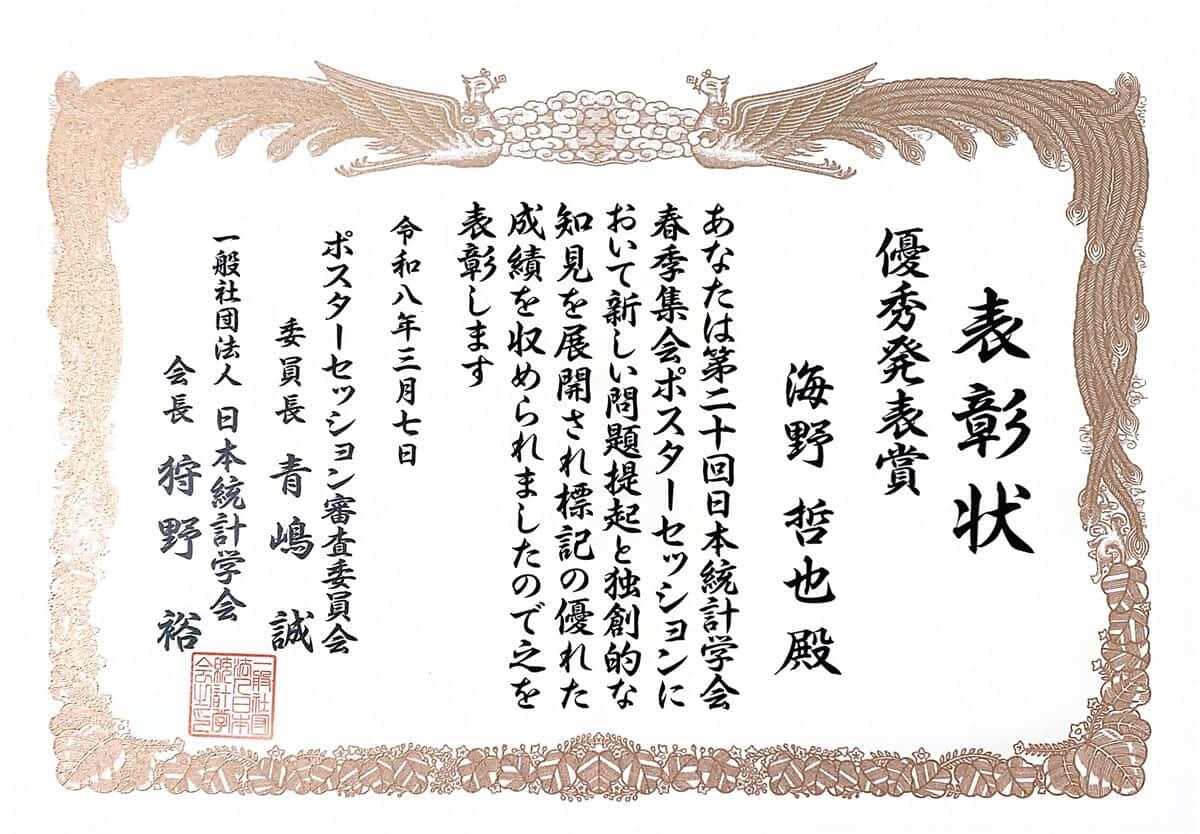 表彰状
優秀発表賞
海野 哲也 殿
あなたは第二十回日本統計学会
春季集会ポスターセッションに
おいて新しい問題提起と独創的な
知見を展開され標記の優れた
成績を収められましたので之を
表彰します
令和八年三月七日
ポスターセッション審査委員会
委員長 青嶋 誠
一般社団法人 日本統計学会
会長 狩野 裕
一般社団
法人日本
統計学
会之印